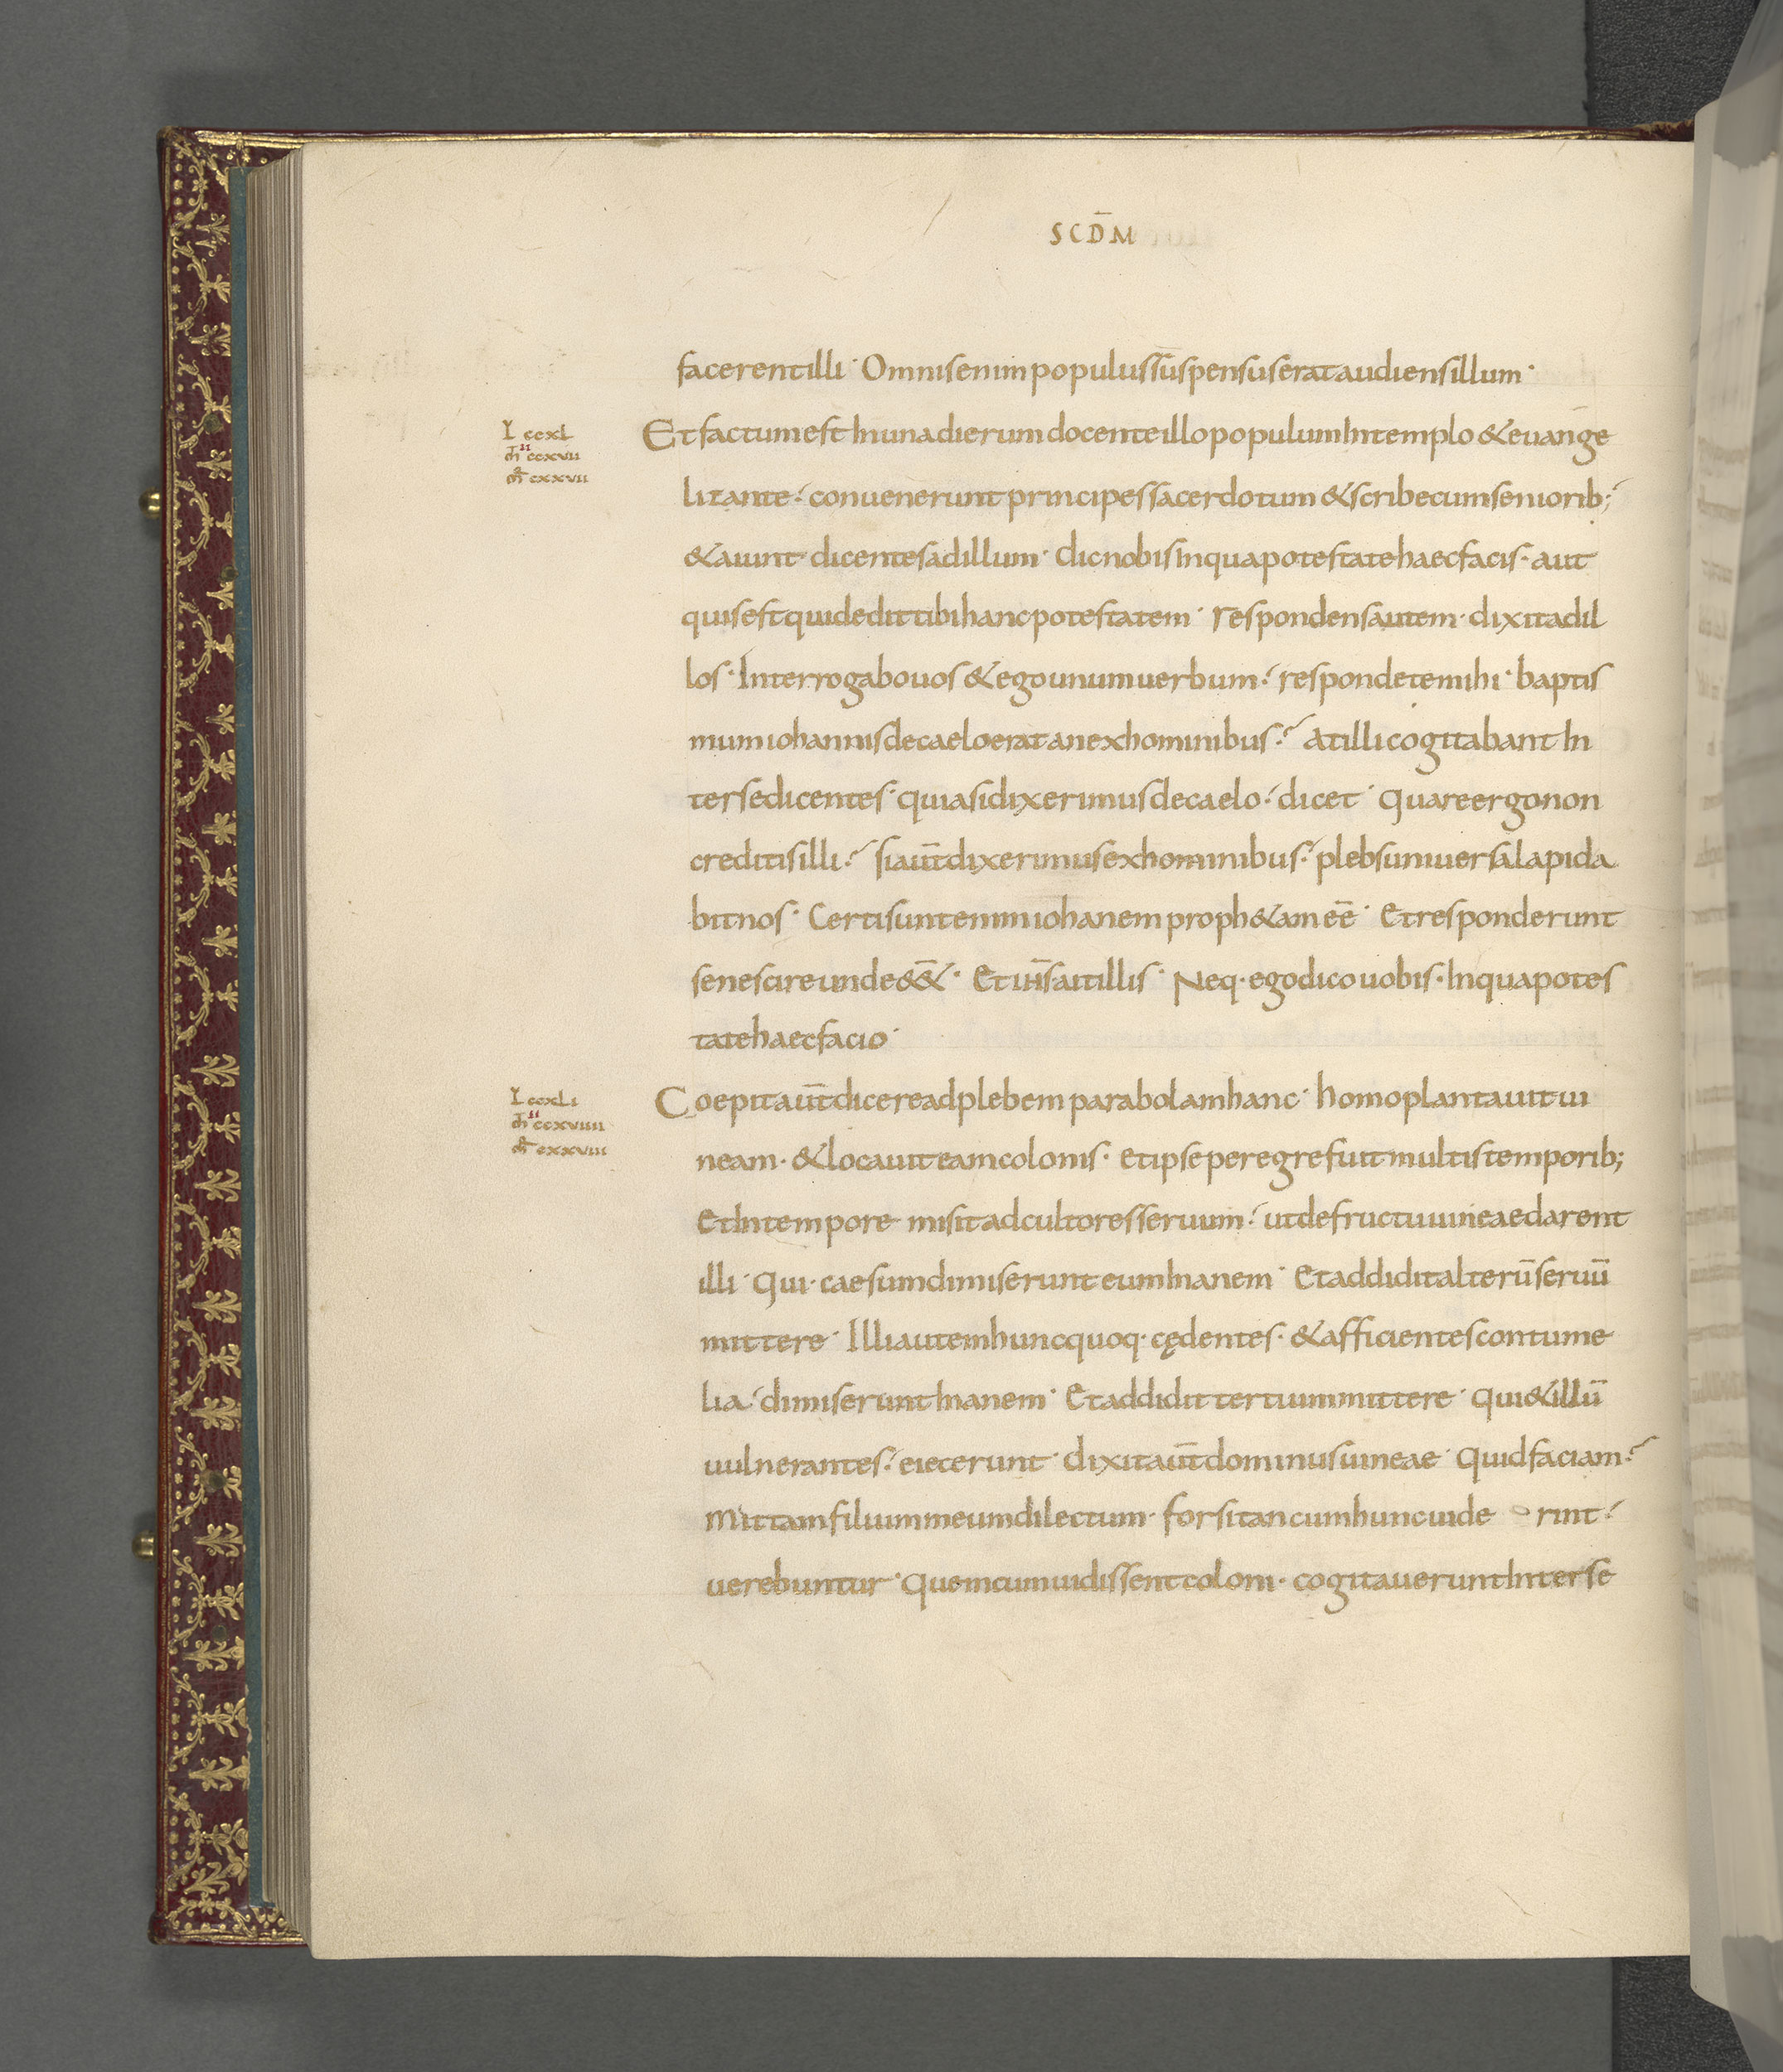 SCD̄M
facerent illi· Omnis enim populus suspensus erat audiens illum·
L ccxl
m̄ ccxvii
m̄r cxxvii
Et factum est In una dierum docente illo populum In templo & euange
litante· conuenerunt principes sacerdotum & scribe cum seniorib;
& aiunt dicentes ad illum· dic nobis In qua potestate haec facis· aut
quis est qui dedit tibi hanc potestatem· respondens autem· dixit ad il
los· Interrogabo uos & ego unum uerbum· respondete mihi· baptis
mum iohannis de caelo erat an ex hominibus? At illi cogitabant In
ter se dicentes· quia si dixerimus de caelo· dicet· Quare ergo non
creditis illi? si aūt dixerimus ex hominibus· plebs uniuersa lapida
bit nos· Certi sunt enim iohanem proph&am eē· Et responderunt
se nescire unde e&̄· Et ih̄s ait illis· Neq· ego dico uobis· In qua potes
tate haec facio·
L ccxli
m̄ ccxviiii
m̄r cxxviii
Coepit aūt dicere ad plebem parabolam hanc· homo plantauit ui
neam· & locauit eam colonis· et ipse peregre fuit multis temporib;
Et In tempore misit ad cultores seruum· ut de fructu uineae darent
illi· Qui· caesum dimiserunt eum Inanem· Et addidit alterū seruū
mittere· Illi autem hunc quoq· cędentes· & afficientes contume
lia· dimiserunt Inanem· Et addidit tertium mittere· qui & illū
uulnerantes· eiecerunt· dixit aūt dominus uineae· Quid faciam?
Mittam filium meum dilectum· forsitan cum hunc uide rint·
uerebuntur· Quem cum uidissent coloni· cogitauerunt Inter se